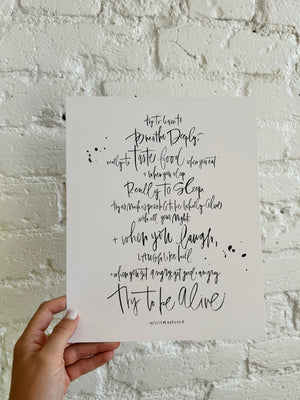 try to learn to
Breathe Deeply,
really to taste food when you eat
+ when you sleep
Really to Sleep.
try as much as possible to be wholly alive
with all your might
+ when you laugh,
LAUGH like hell
+ when you get angry, get good + angry.
Try to be alive
- WILLIAM SAROYAN